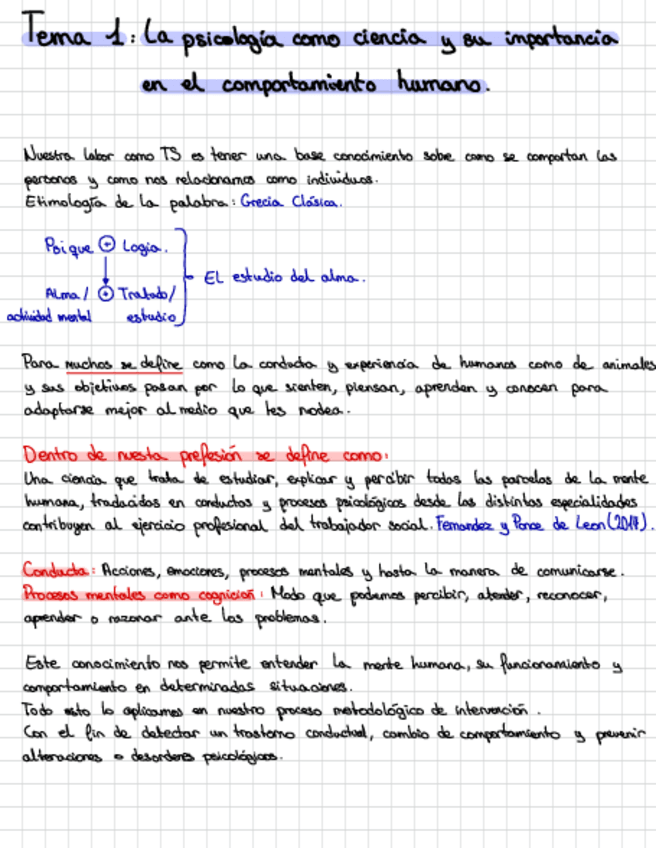 Tema 1: La psicología como ciencia y su importancia
en el comportamiento humano.
Nuestra labor como TS es tener una base conocimiento sobre como se comportan las
personas y como nos relacionamos como individuos.
Etimología de la palabra: Grecia Clásica.
Psique + Logia.
EL estudio del alma.
Alma/ + Tratado/
actividad mental estudio
Para muchos se define como la conducta y experiencia de humanos como de animales
y sus objetivos pasan por lo que sienten, piensan, aprenden y conocen para
adaptarse mejor al medio que les rodea.
Dentro de nuesta prefesión se define como:
Una ciencia que trata de estudiar, explicar y percibir todas las parcelas de la mente
humana, traducidas en conductas y procesos psicológicos desde las distintas especialidades
contribuyen al ejercicio profesional del trabajador social. Fernandez y Ponce de Leon (2017).
Conducta: Acciones, emociones, procesos mentales y hasta la manera de comunicarse.
Procesos mentales como cognicion: Modo que podemos percibir, atender, reconocer,
aprender o razonar ante los problemas.
Este conocimiento nos permite entender la mente humana, su funcionamiento y
comportamiento en determinadas situaciones.
Todo esto lo aplicamos en nuestro proceso metodológico de intervención.
Con el fin de detectar un trastorno conductual, cambio de comportamiento y prevenir
alteraciones o desordenes psicológicos.